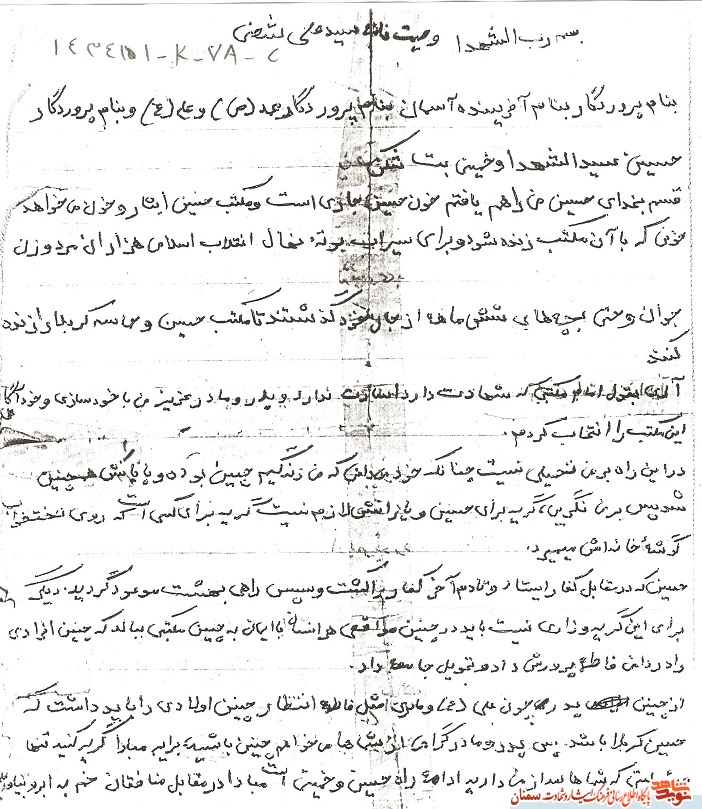 بسه رب الشهدا وصیت نامه سید علی شفیعی
143451-K-78-2
بنام پروردگار بنام آفریننده آسمان بنام پروردگار محمد (ص) و علی (ع) و بنام پروردگار
حسین سید الشهدا و خمینی بت شکن
قسم بخدای حسین من راهم یافتم خون حسین جاری است و مکتب حسین ایثار و خون می خواهد
خونی که با آن مکتب زنده شود و برای سیراب بوته نهال انقلاب اسلامی هزاران مرد و زن
جوان و حتی بچه های شش ماهه از جان خود گذشتند تا مکتب حسین و حماسه کربلا را زنده
کنند
آری بقول امام مکتبی که شهادت دارد اسارت ندارد و پدر و مادر عزیز من با خودسازی و خودآگا
این مکتب را انتخاب کردم.
در این راه برمن تحمیلی نیست چنانکه خود میدانی که من زندگیم چنین بوده و پایانش چنین
شد پس برمن نگریید، گریه برای حسین و یارانش لازم نیست گریه برای کسی است که روی تختخواب
گوشه خانه اش میمیرد.
حسین که در مقابل کفار ایستاد و تا دم آخر کفار را کشت و سپس راهی بهشت موعود گردید. دیگر
برای این گریه و زاری نیست باید در چنین مواقعی هر انسان با ایمان به چنین مکتبی ببالد که چنین افرادی
را در دامن فاطمه پرورش داد و تحویل جامعه داد.
از چنین پدری چون علی (ع) و مادری مثل فاطمه انتظار چنین اولادی را باید داشت که
حسین کربلا باشد. پس پدر و مادر گرامی از شما ها می خواهم چنین باشید، برایم مبادا گریه کنید تنها
که شما ها بعد از من دارید ادامه راه حسین و خمینی است مبادا در مقابل منافقان خم به ابرو
نوید شاهد
پایگاه اطلاع رسانی فرهنگ ایثار و شهادت سمنان